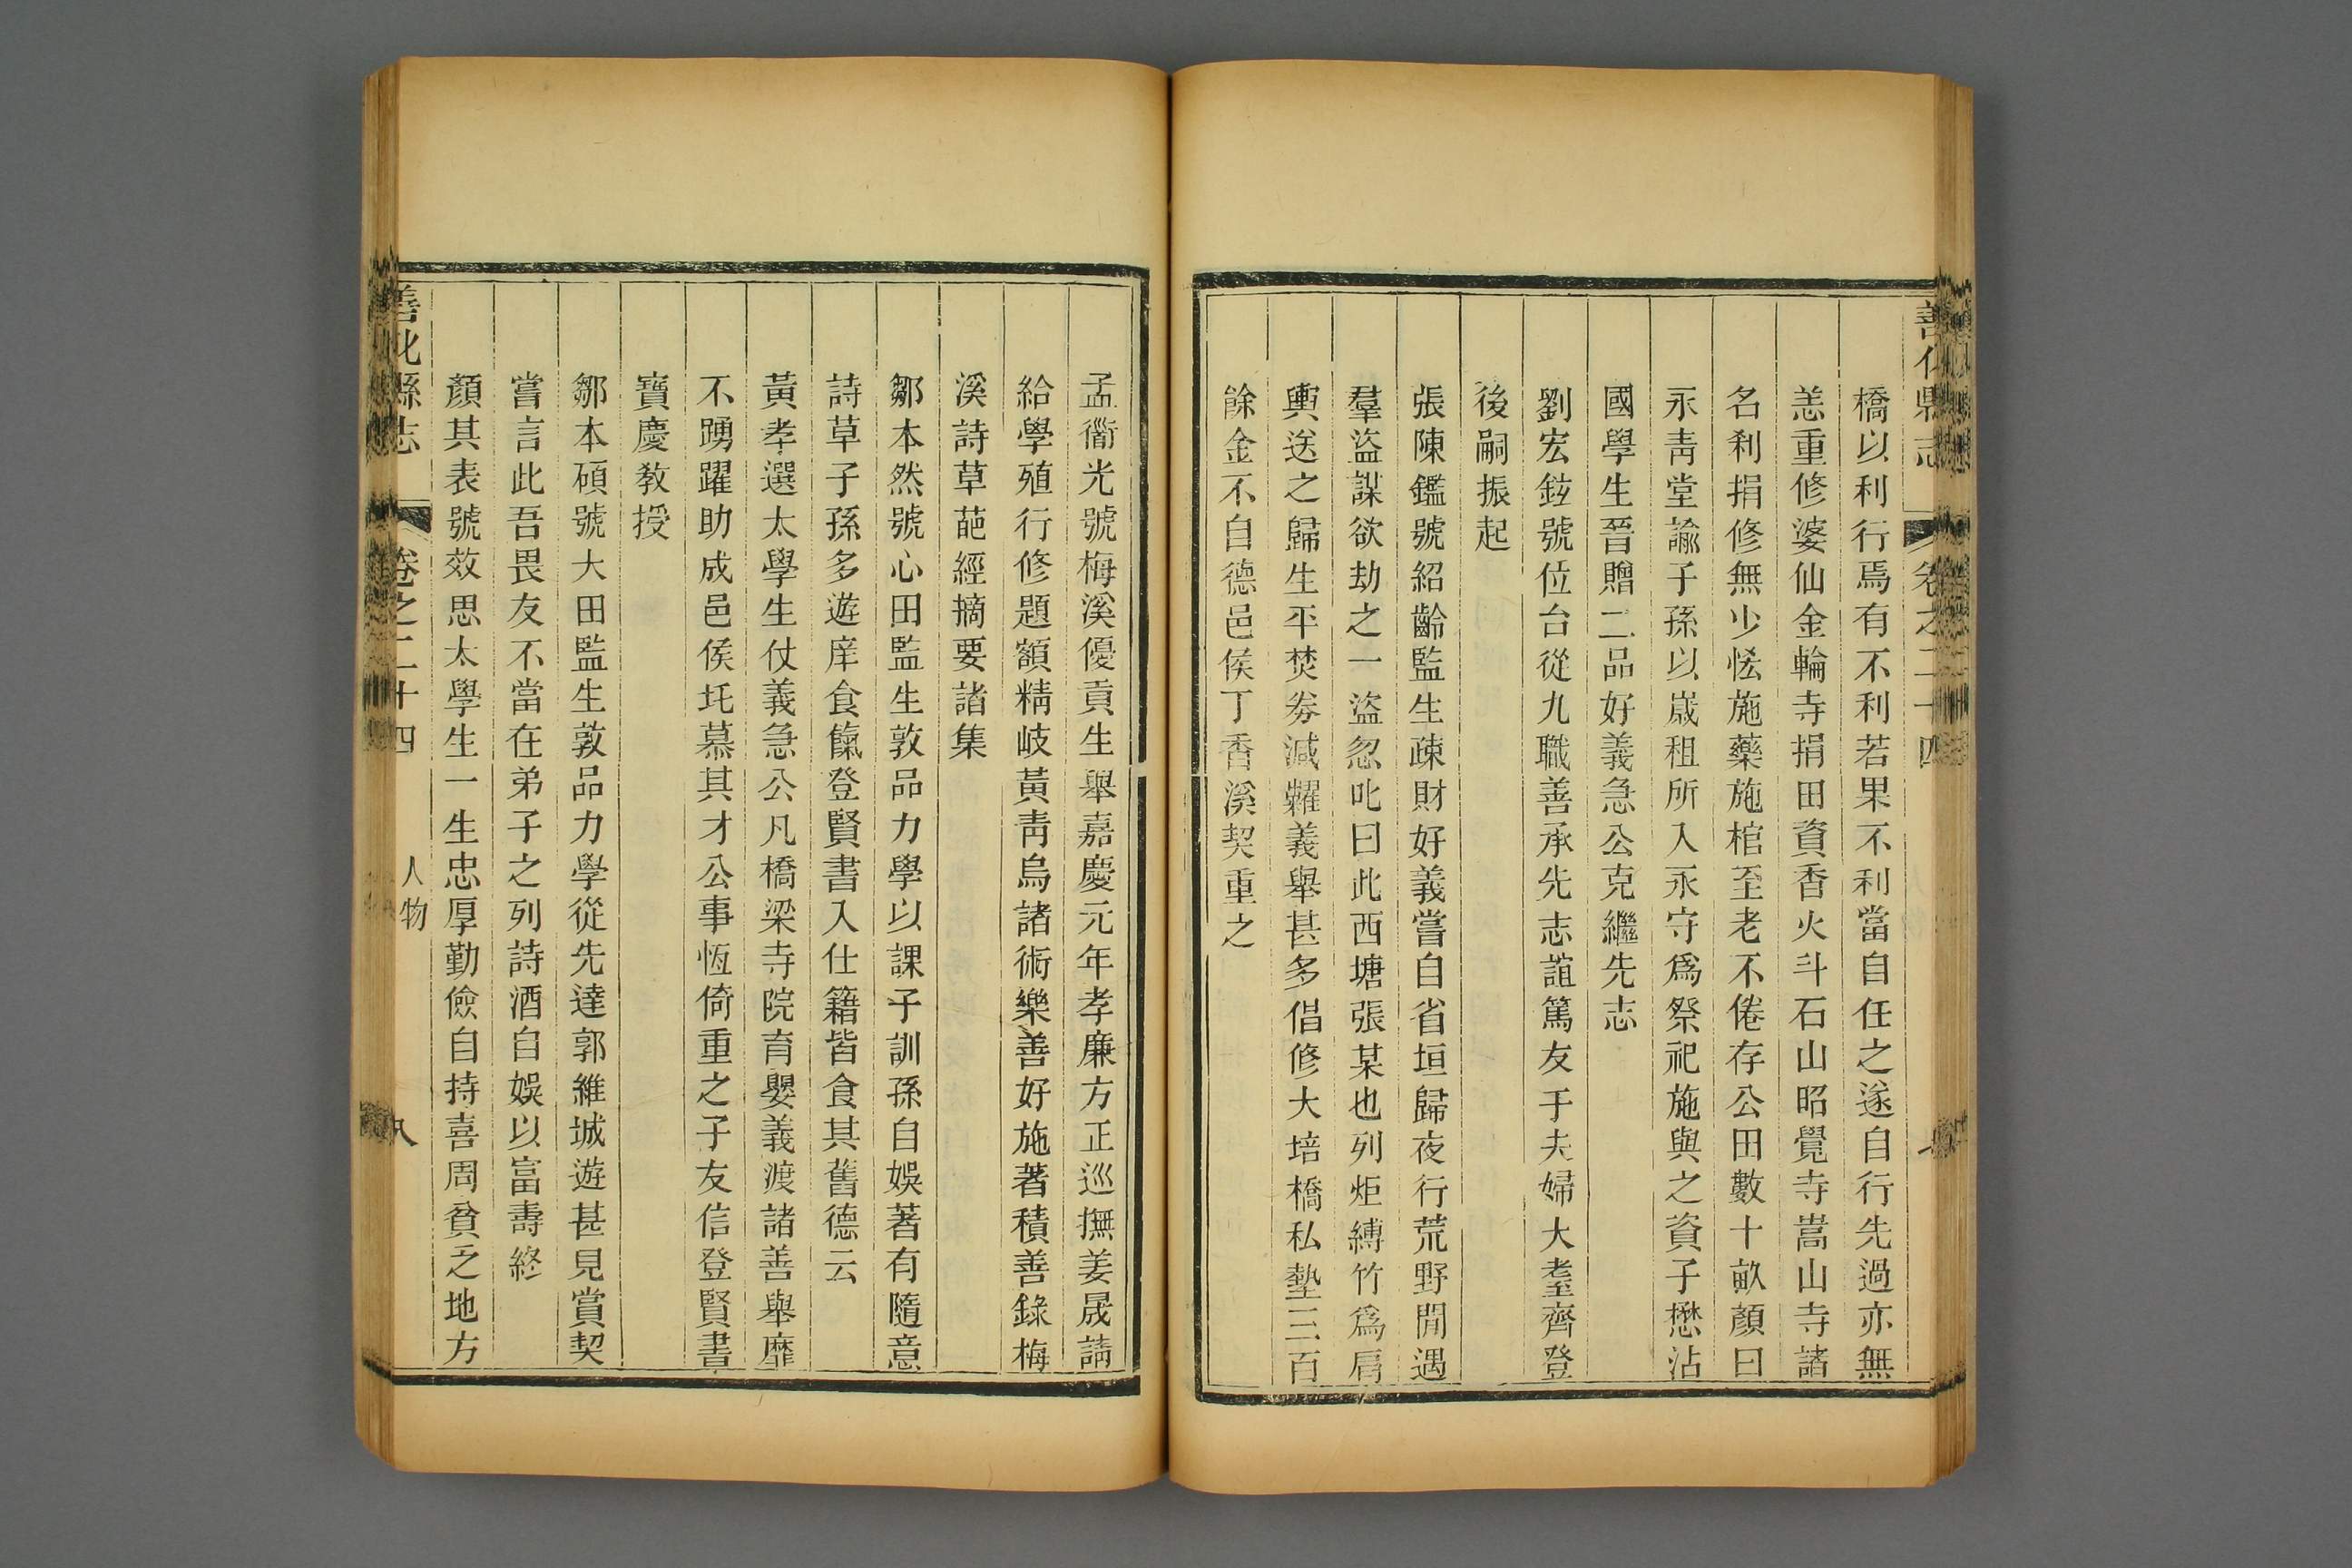 善化縣志
卷之二十四
橋以利行焉有不利若果不利當自任之遂自行先過亦無
恙重修婆仙金輪寺捐田資香火斗石山昭覺寺嵩山寺諸
名刹捐修無少恡施藥施棺至老不倦存公田數十畝顏曰
永靑堂諭子孫以歲租所入永守爲祭祀施與之資子懋沾
國學生晉贈二品好義急公克繼先志
劉宏鉉號位台從九職善承先志誼篤友于夫婦大耋齊登
後嗣振起
張陳鑑號紹齡監生疎財好義嘗自省垣歸夜行荒野閒遇
羣盜謀欲劫之一盜忽叱曰此西塘張某也列炬縛竹爲肩
輿送之歸生平焚券減糶義舉甚多倡修大培橋私墊三百
餘金不自德邑侯丁香溪契重之
孟衢光號梅溪優貢生舉嘉慶元年孝廉方正巡撫姜晟請
給學殖行修題額精岐黃靑烏諸術樂善好施著積善錄梅
溪詩草葩經摘要諸集
鄒本然號心田監生敦品力學以課子訓孫自娛著有隨意
詩草子孫多遊庠食餼登賢書入仕籍皆食其舊德云
黃孝選太學生仗義急公凡橋梁寺院育嬰義渡諸善舉靡
不踴躍助成邑侯圫慕其才公事恆倚重之子友信登賢書
寶慶敎授
鄒本碩號大田監生敦品力學從先達郭維城遊甚見賞契
嘗言此吾畏友不當在弟子之列詩酒自娛以富壽終
顏其表號效思太學生一生忠厚勤儉自持喜周貧乏地方
善化縣志
卷之二十四
人物
八